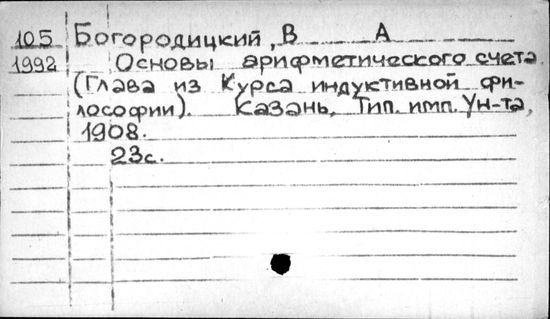 105 Богородицкий, В А
1992 Основы арифметического счета
(Глава из Курса индуктивной фи-
лософии). Казань, Тип. имп. Ун-та,
1908.
23с.